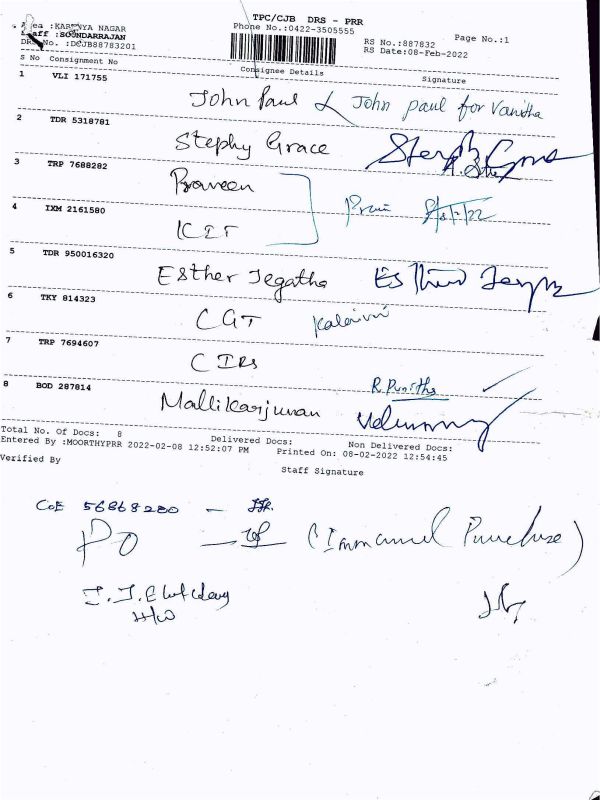 TPC/CJB DRS - PRR
Area :KARUNYA NAGAR
Phone No.:0422-3505555
Staff :SOUNDARRAJAN
RS No.:887832 Page No.:1
DRS No. :DCJB88783201
RS Date:08-Feb-2022
S No Consignment No Consignee Details Signature
1 VLI 171755
John Paul John paul for Vanitha
2 TDR 5318781
Stephy Grace
3 TRP 7688282
Praveen
4 IXM 2161580
KIT
5 TDR 950016320
Esther Jegatha
6 TKY 814323
CGT
7 TRP 7694607
CIRs
8 BOD 287814
R. Punitha
Mallikarjunan
Total No. Of Docs: 8 Delivered Docs: Non Delivered Docs:
Entered By :MOORTHYPRR 2022-02-08 12:52:07 PM Printed On: 08-02-2022 12:54:45
Verified By
Staff Signature
CoE 56868280 -
PO - (Immanuel Purchase)